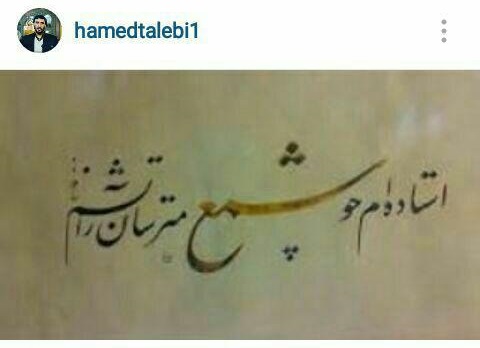 hamedtalebi1
استاده‌ام چو شمع مترسان ز آتشم